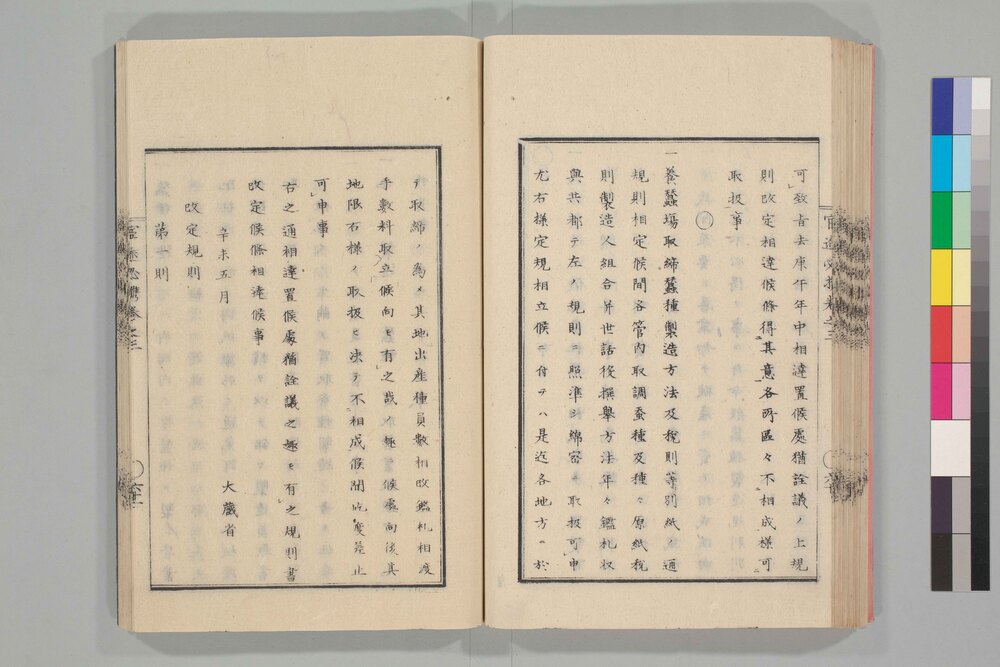 可致旨去庚午年中相達置候處猶詮議ノ上規
則改定相達候條得其意各所區々不相成樣可
取扱事
一養蠶場取締蠶種製造方法及稅則等別紙ノ通
規則相定候間各管內取調蚕種及種々原紙稅
則製造人組合幷世話役撰擧方法年々鑑札收
與共都テ左ノ規則ニ照準シ綿密ニ取扱可申
尤右樣定規相立候ニ付テハ是迄各地方ニ於
テ取締ノ為メ其地出產種員數相改鑑札相渡
手數料取立候向モ有之哉ノ趣ニ候處向後其
地限右樣ノ取扱ヒ決テ不相成候間此度差止
可申事
右之通相達置候處猶詮議之趣モ有之規則書
改定候條相達候事
辛未五月 大藏省
改定規則
第一則